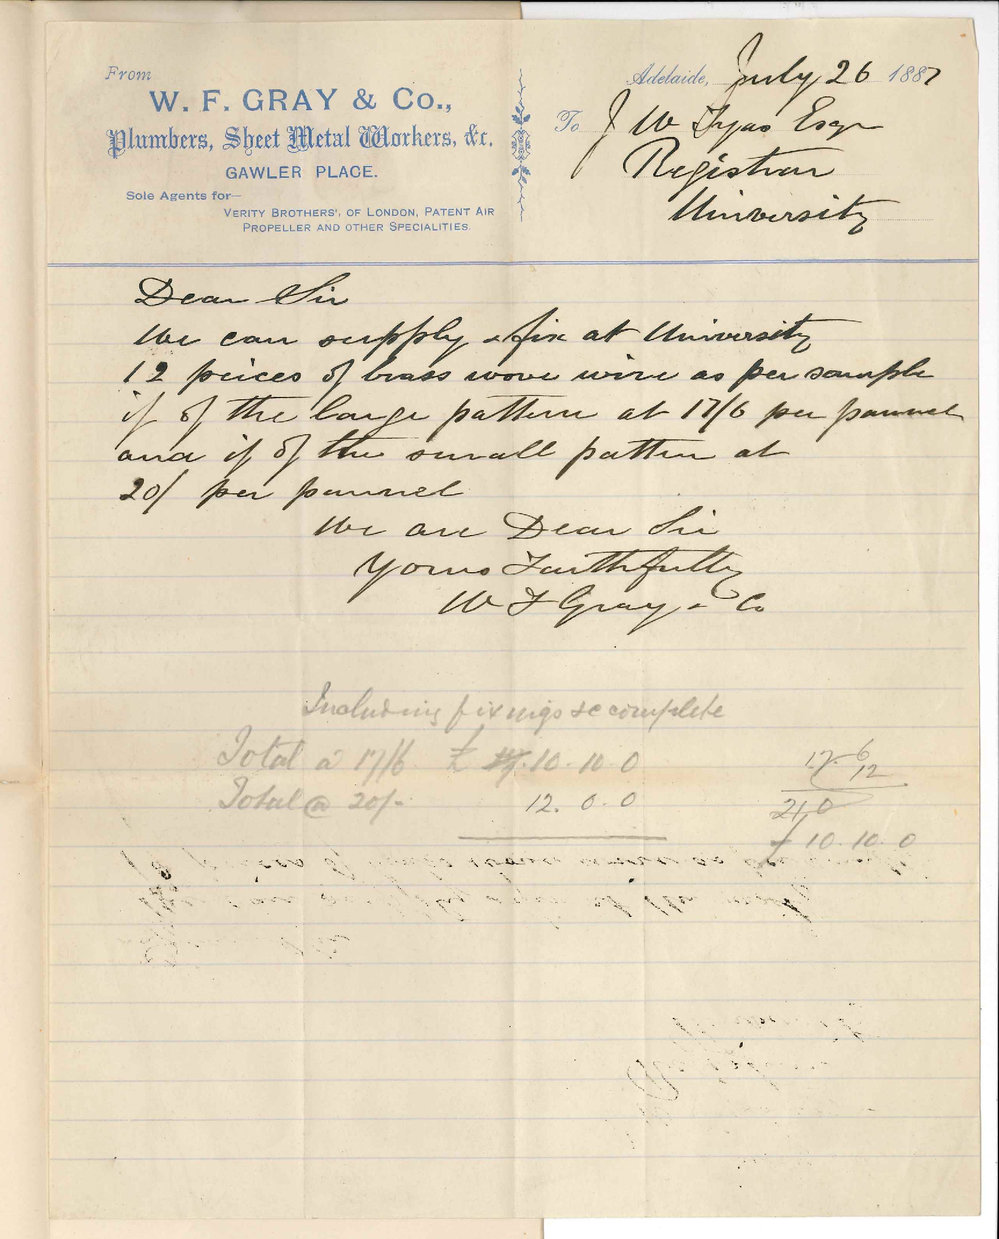 From
W. F. GRAY & Co.,
Plumbers, Sheet Metal Workers, &c.
GAWLER PLACE.
Sole Agents for—
VERITY BROTHERS', OF LONDON, PATENT AIR
PROPELLER AND OTHER SPECIALITIES.
Adelaide, July 26 1887
To J W Tyas Esqr
Registrar
University
Dear Sir
We can supply & fix at University
12 peices of brass wove wire as per sample
if of the large pattern at 17/6 per pannel
and if of the small pattern at
20/ per pannel
We are Dear Sir
Yours Faithfully
W F Gray & Co
Including fixings &c complete
Total a 17/6 £ 10. 10. 0
Total @ 20/- 12. 0. 0
17. 6
12
21/0
£ 10. 10. 0